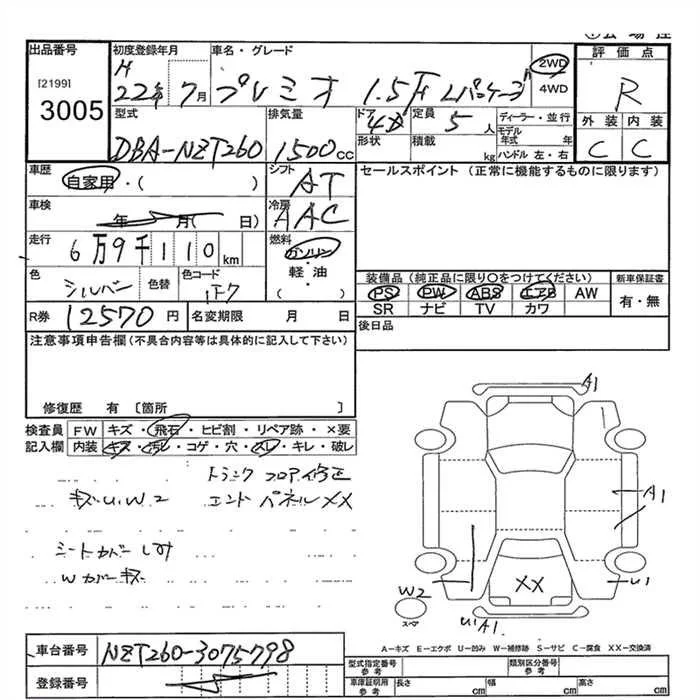 出品番号
[2199]
3005
初度登録年月
H
22年 7月
車名・グレード
プレミオ 1.5F Lパッケージ
2WD
4WD
評価点
R
外装 内装
C C
型式
DBA-NZT260
排気量
1500cc
ドア
4D
形状
定員
5人
積載
kg
ディーラー・並行
モデル年式 年
ハンドル 左・右
車歴
自家用・( )
シフト
AT
車検
年 月( 日)
冷房
AAC
走行
6万9千110km
燃料
ガソリン
軽油・
( )
色
シルバー
色替
色コード
1F7
R券 12570円
名変期限 月 日
セールスポイント (正常に機能するものに限ります)
装備品(純正品に限り○をつけてください)
PS PW ABS エアB AW
SR ナビ TV カワ
新車保証書
有・無
後日品
注意事項申告欄(不具合内容等は具体的に記入して下さい)
修復歴 有 〔箇所 〕
検査員記入欄
FW キズ・飛石・ヒビ割・リペア跡・×要
内装 キズ・汚レ・コゲ・穴・スレ・キレ・破レ
トランク フロア修正
キズU.W2 エンドパネルXX
シートカバー
Wカバーキズ
A1
A1
U1
W2
スペア
XX
U1A1
A-キズ E-エクボ U-凹み W-補修跡 S-サビ C-腐食 XX-交換済
車台番号 NZT260-3075798
登録番号
型式指定番号 参考
類別区分番号 参考
車庫証明用 参考
長さ cm 幅 cm 高さ cm